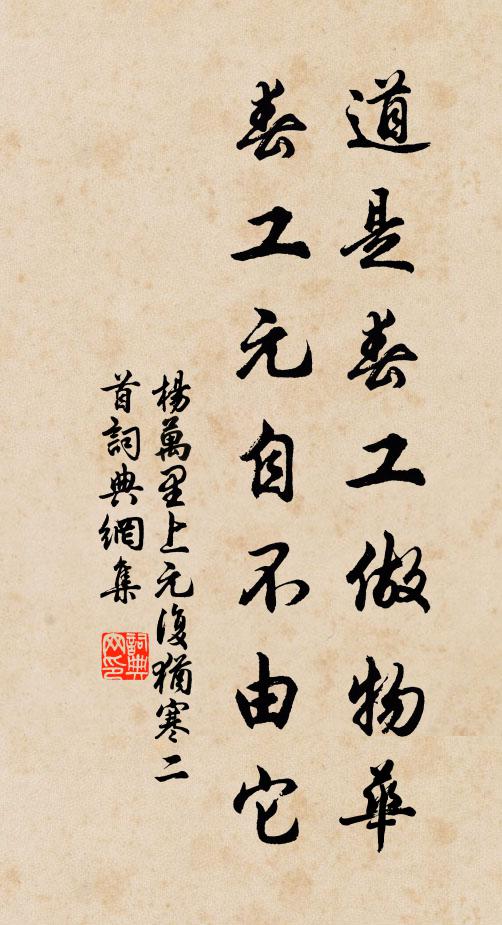 道是春工做物華
春工元自不由它
楊萬里上元復猶寒二
首詞典網集
詞典
网印